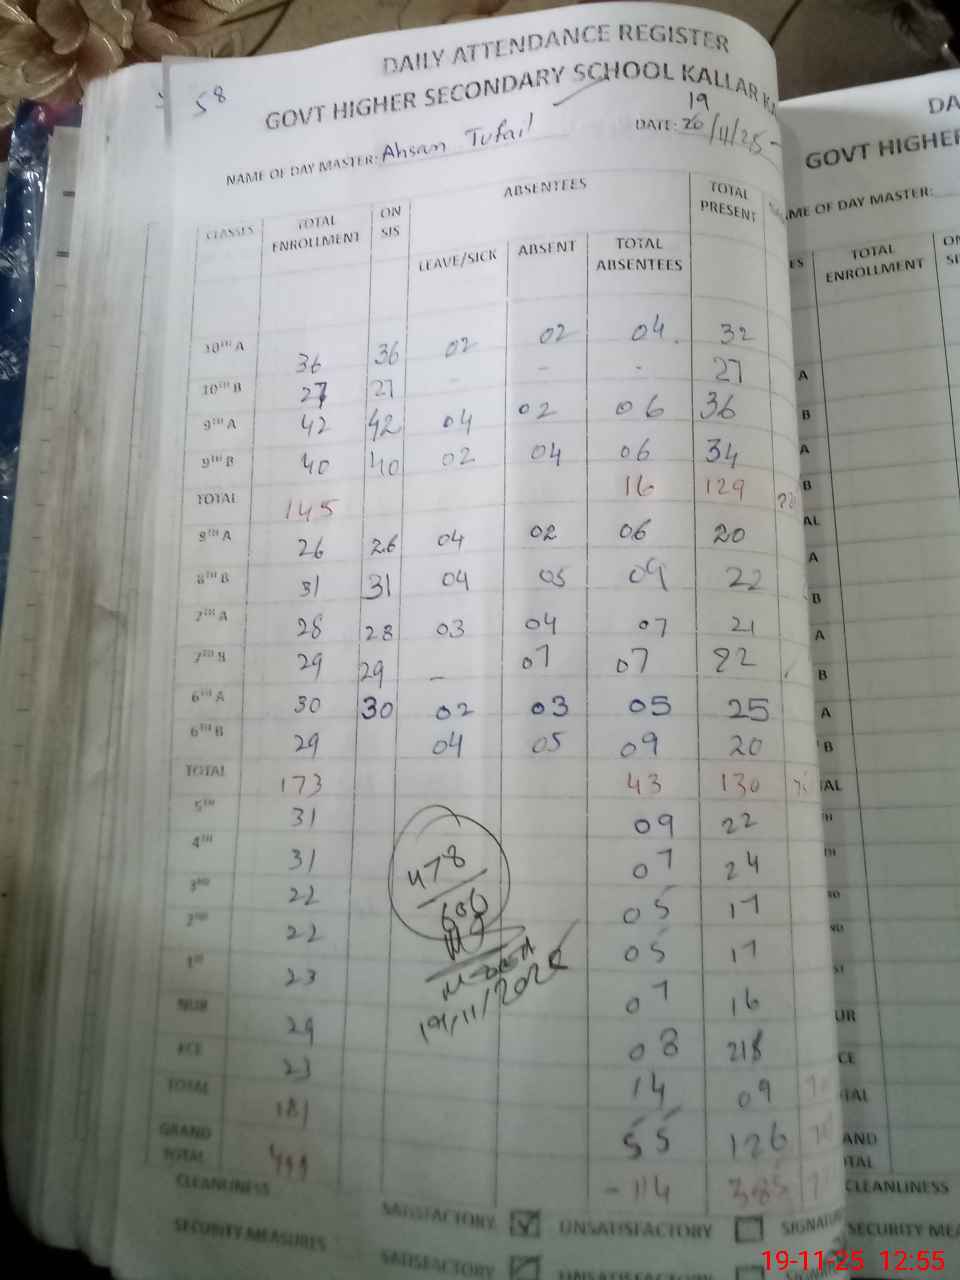 58
DAILY ATTENDANCE REGISTER
GOVT HIGHER SECONDARY SCHOOL KALLAR
NAME OF DAY MASTER: Ahsan Tufail DATE: 19 20/11/25
CLASSES TOTAL ENROLLMENT ON SIS ABSENTEES TOTAL PRESENT
LEAVE/SICK ABSENT TOTAL ABSENTEES
10TH A 36 36 02 02 04 32
10TH B 27 27 - - - 27
9TH A 42 42 04 02 06 36
9TH B 40 40 02 04 06 34
TOTAL 145 16 129
8TH A 26 26 04 02 06 20
8TH B 31 31 04 05 09 22
7TH A 28 28 03 04 07 21
7TH B 29 29 - 07 07 22
6TH A 30 30 02 03 05 25
6TH B 29 04 05 09 20
TOTAL 173 43 130
5TH 31 09 22
4TH 31 07 24
3RD 22 05 17
2ND 22 05 17
1ST 23 07 16
NUR 29 08 21
ECE 23 14 09
TOTAL 181 55 126
GRAND TOTAL 499 -114 385
478
606
19/11/2025
CLEANLINESS SATISFACTORY UNSATISFACTORY
SECURITY MEASURES SATISFACTORY UNSATISFACTORY
DA
GOVT HIGHE
ME OF DAY MASTER:
ES TOTAL ENROLLMENT ON SI
A
B
A
B
AL
A
B
A
B
A
B
AL
TH
TH
RD
ND
ST
UR
CE
TAL
AND
TAL
CLEANLINESS
SECURITY MEA
19-11-25 12:55